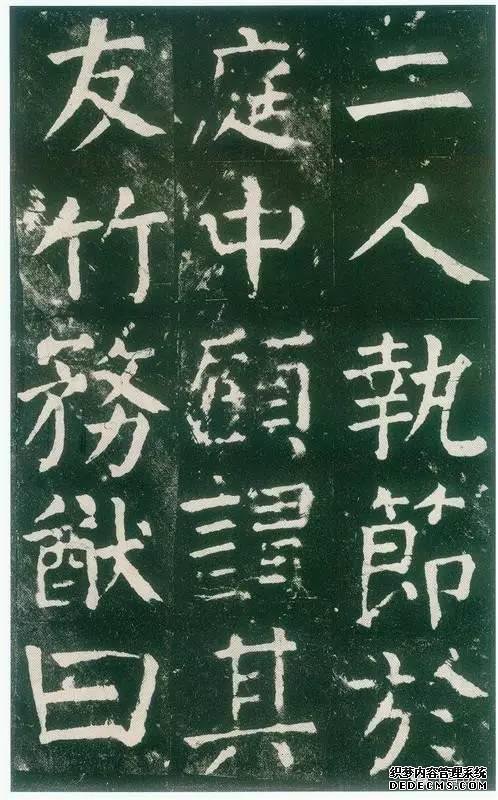 二人執節於
庭中顧謂其
友竹務猷曰
织梦内容管理系统
DEDECMS.COM